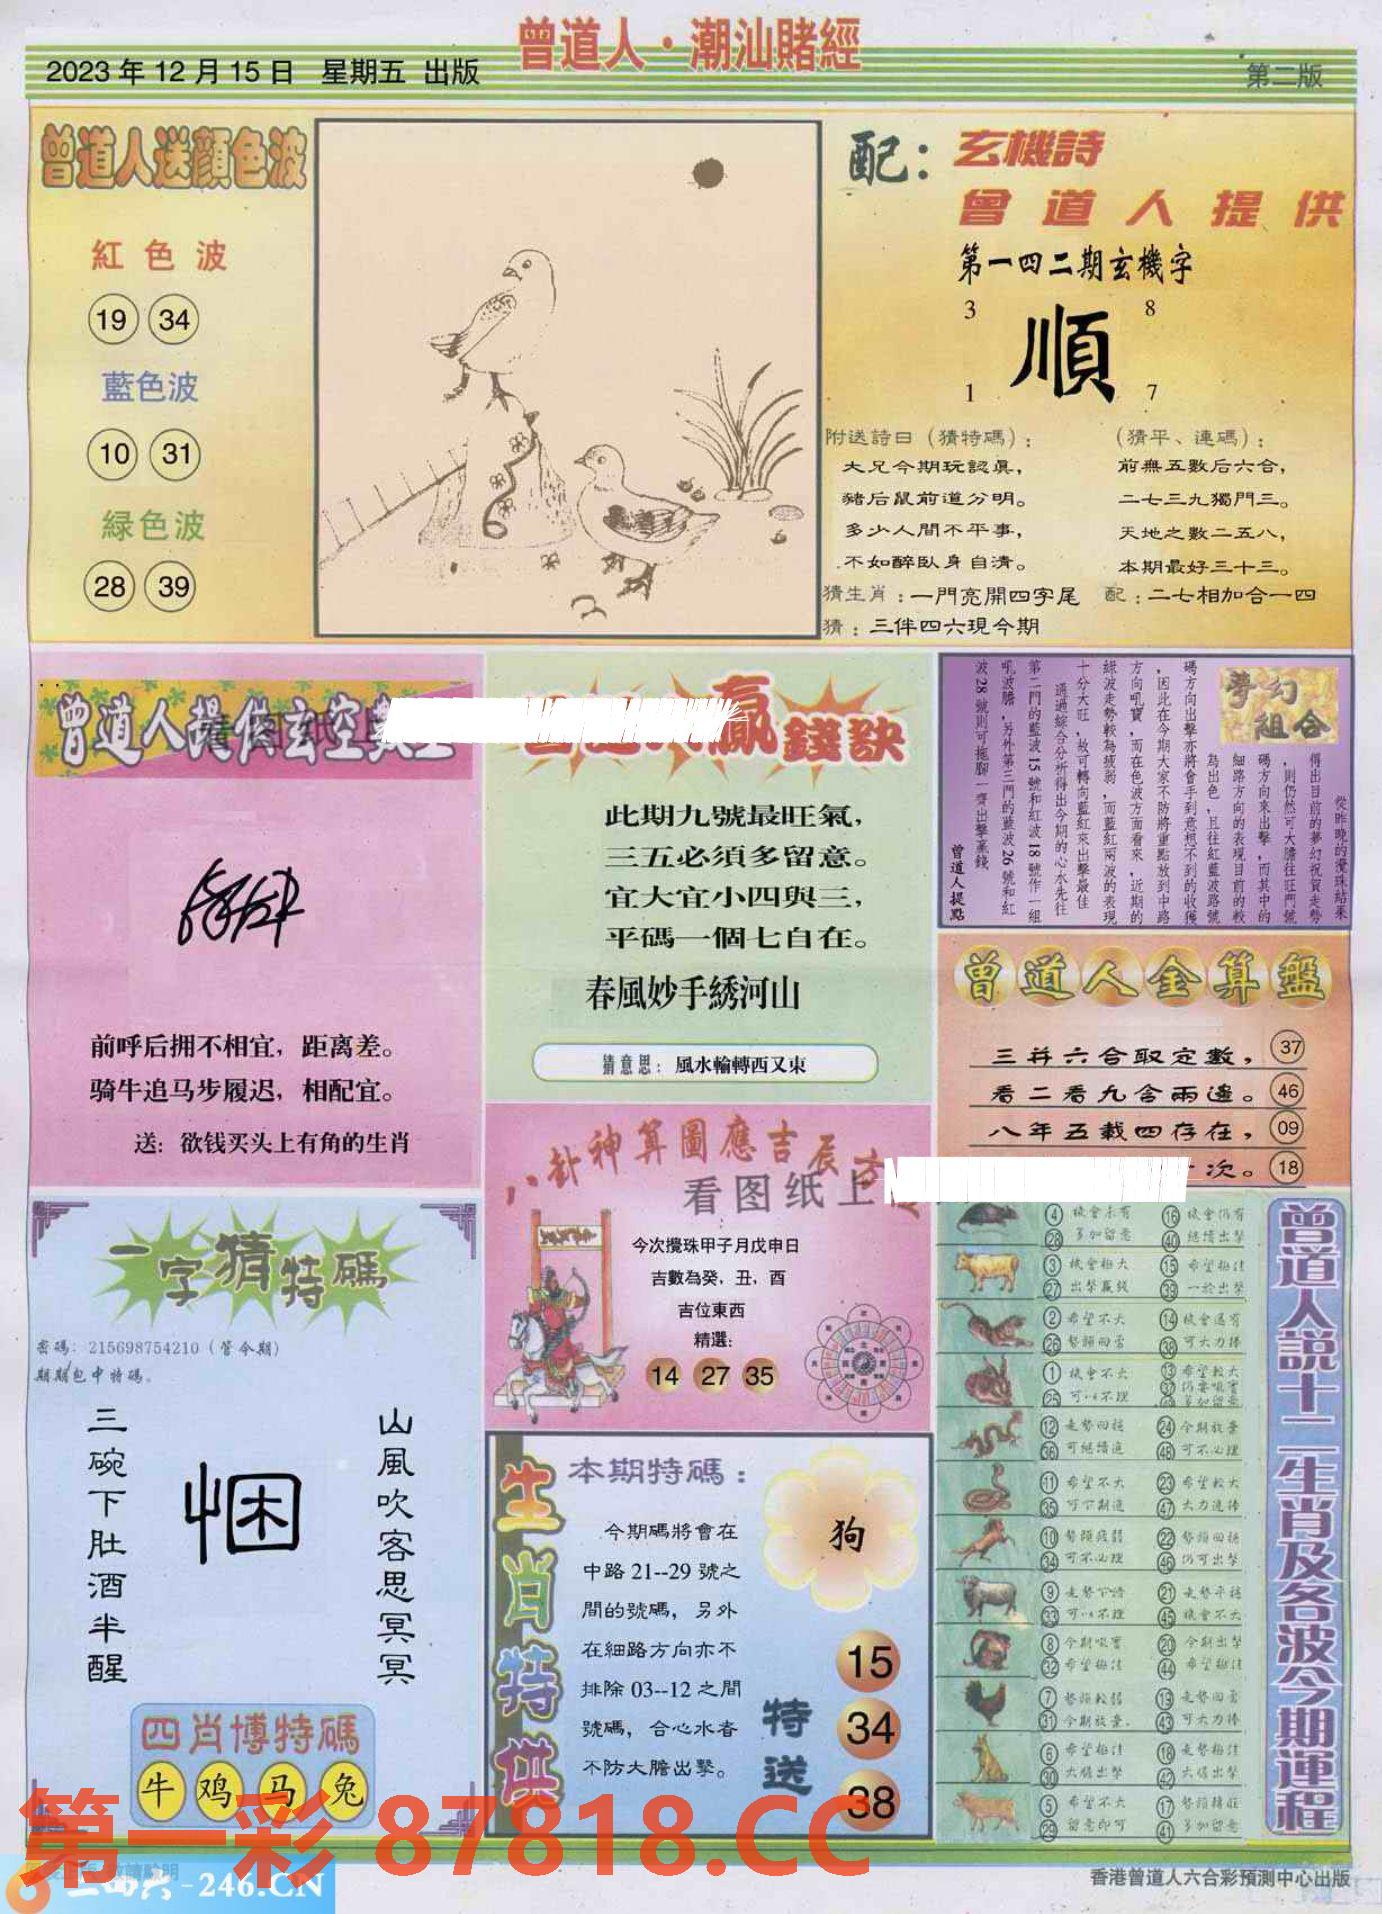 曾道人·潮汕賭經
2023年12月15日 星期五 出版
第二版
曾道人送顔色波
紅色波
19 34
藍色波
10 31
緑色波
28 39
配：玄機詩
曾道人提供
第一四二期玄機字
3 8
順
1 7
附送詩曰（猜特碼）：
大兄今期玩認真，
豬后鼠前道分明。
多少人間不平事，
不如醉臥身自清。
猜生肖：一門亮開四字尾
猜：三伴四六現今期
（猜平、連碼）：
前無五數后六合，
二七三九獨門三。
天地之數二五八，
本期最好三十三。
配：二七相加合一四
曾道人提供玄空
前呼后拥不相宜，距离差。
骑牛追马步履迟，相配宜。
送：欲钱买头上有角的生肖
贏錢訣
此期九號最旺氣，
三五必須多留意。
宜大宜小四與三，
平碼一個七自在。
春風妙手綉河山
猜意思：風水輪轉西又東
夢幻
組合
從昨晚的攪珠結果
得出目前的夢幻祝賀走勢
，則仍然可大膽往旺門號
碼方向來出擊，而其中的
細路方向的表現目前的較
為出色，且往紅藍波路號
碼方向出擊亦將會手到意想不到的收獲
，因此在今期大家不防將重點放到中路
方向吼寶，而在色波方面看來，近期的
綠波走勢較為疲弱，而藍紅兩波的表現
十分大旺，故可轉向藍紅來出擊最佳
通過綜合分析得出今期的心水先往
第二門的藍波15號和紅波18號作一組
吼波膽，另外第三門的藍波26號和紅
波28號則可拖腳一齊出擊贏錢
曾道人提點
曾道人金算盤
三并六合取定數，37
看二看九含兩邊。46
八年五載四存在，09
次。18
八卦神算圖應吉辰
看图纸上
今次攪珠甲子月戊申日
吉數為癸，丑，酉
吉位東西
精選：
14 27 35
一字猜特碼
密碼：215698754210（管今期）
期期包中特碼。
三碗下肚酒半醒
悃
山風吹客思冥冥
四肖博特碼
牛 鸡 马 兔
生肖特供
本期特碼：
今期碼將會在
中路21--29號之
間的號碼，另外
在細路方向亦不
排除03--12之間
號碼，合心水者
不防大膽出擊。
狗
特送
15
34
38
曾道人説十二生肖及各波今期運程
4 機會未有 16 機會仍有
28 多加留意 40 繼續出擊
3 機會極大 15 希望極佳
27 出擊贏錢 39 一於出擊
2 希望不大 14 機會還有
26 勢頭回落 38 可大力捧
1 機會不大 13 希望較大
25 可以不理
12 走勢回穩 24 今期放棄
36 可繼續追 48 可不必理
11 希望不大 23 希望較大
35 可下期追 47 大力追捧
10 勢頭疲弱 22 勢頭回穩
34 可不必理 46 仍可出擊
9 走勢下滑 21 走勢平穩
33 可以不理 45 機會不大
8 今期吼寶 20 今期出擊
32 希望極佳 44 希望極佳
7 勢頭較弱 19 走勢回落
31 今期放棄 43 可大力捧
6 希望極佳 18 走勢極佳
30 大膽出擊 42 大膽出擊
5 希望不大 17 勢頭轉旺
29 留意即可 41 多加留意
第一彩 87818.CC
二四六-246.CN
香港曾道人六合彩預測中心出版